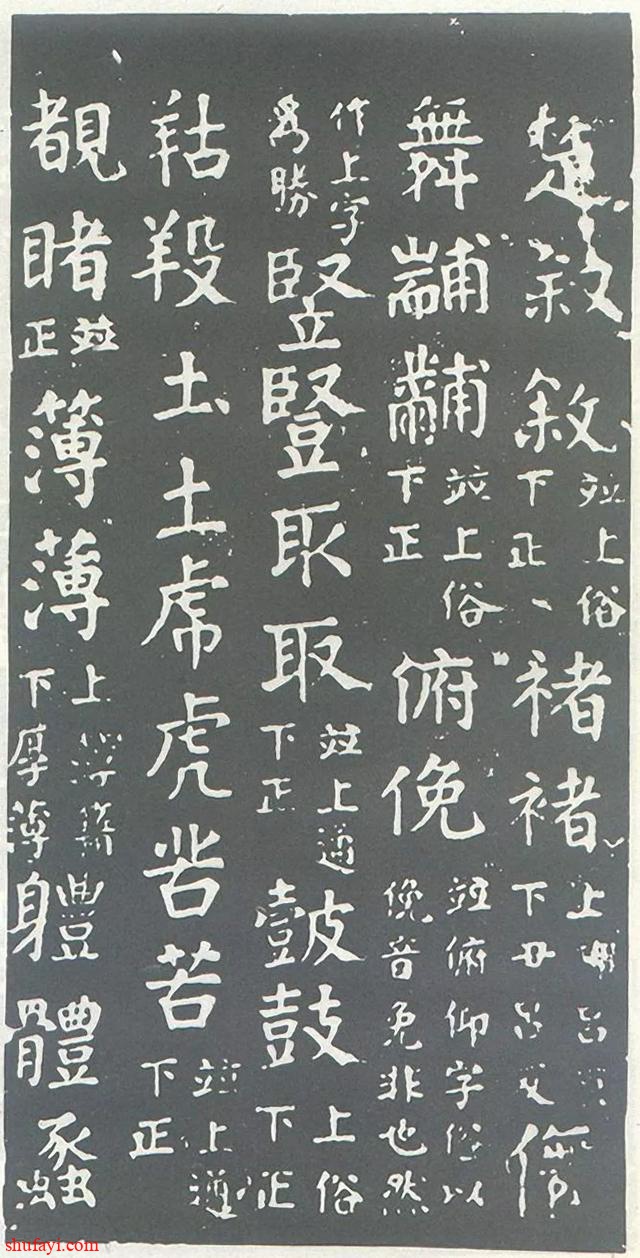 楚敘敍並上俗下正褚禇上下
舞黼黼並上俗下正俯俛並俯仰字俗以俛音免非也然
作上字為勝竪豎取取並上通下正皷鼓上俗下正
羖圡土虎虎苦並上通下正
覩睹並正簿薄上簿籍下厚薄軆體蠡